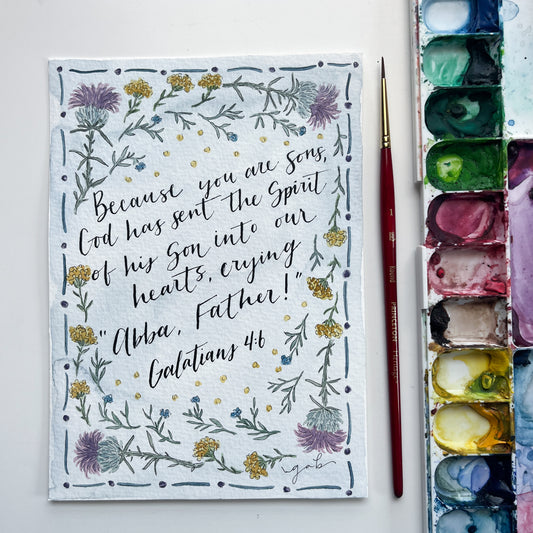 Because you are Sons,
God has sent the Spirit
of his Son into our
hearts, crying
"Abba, Father!"
Galatians 4:6
gmb
1
PRINCETON